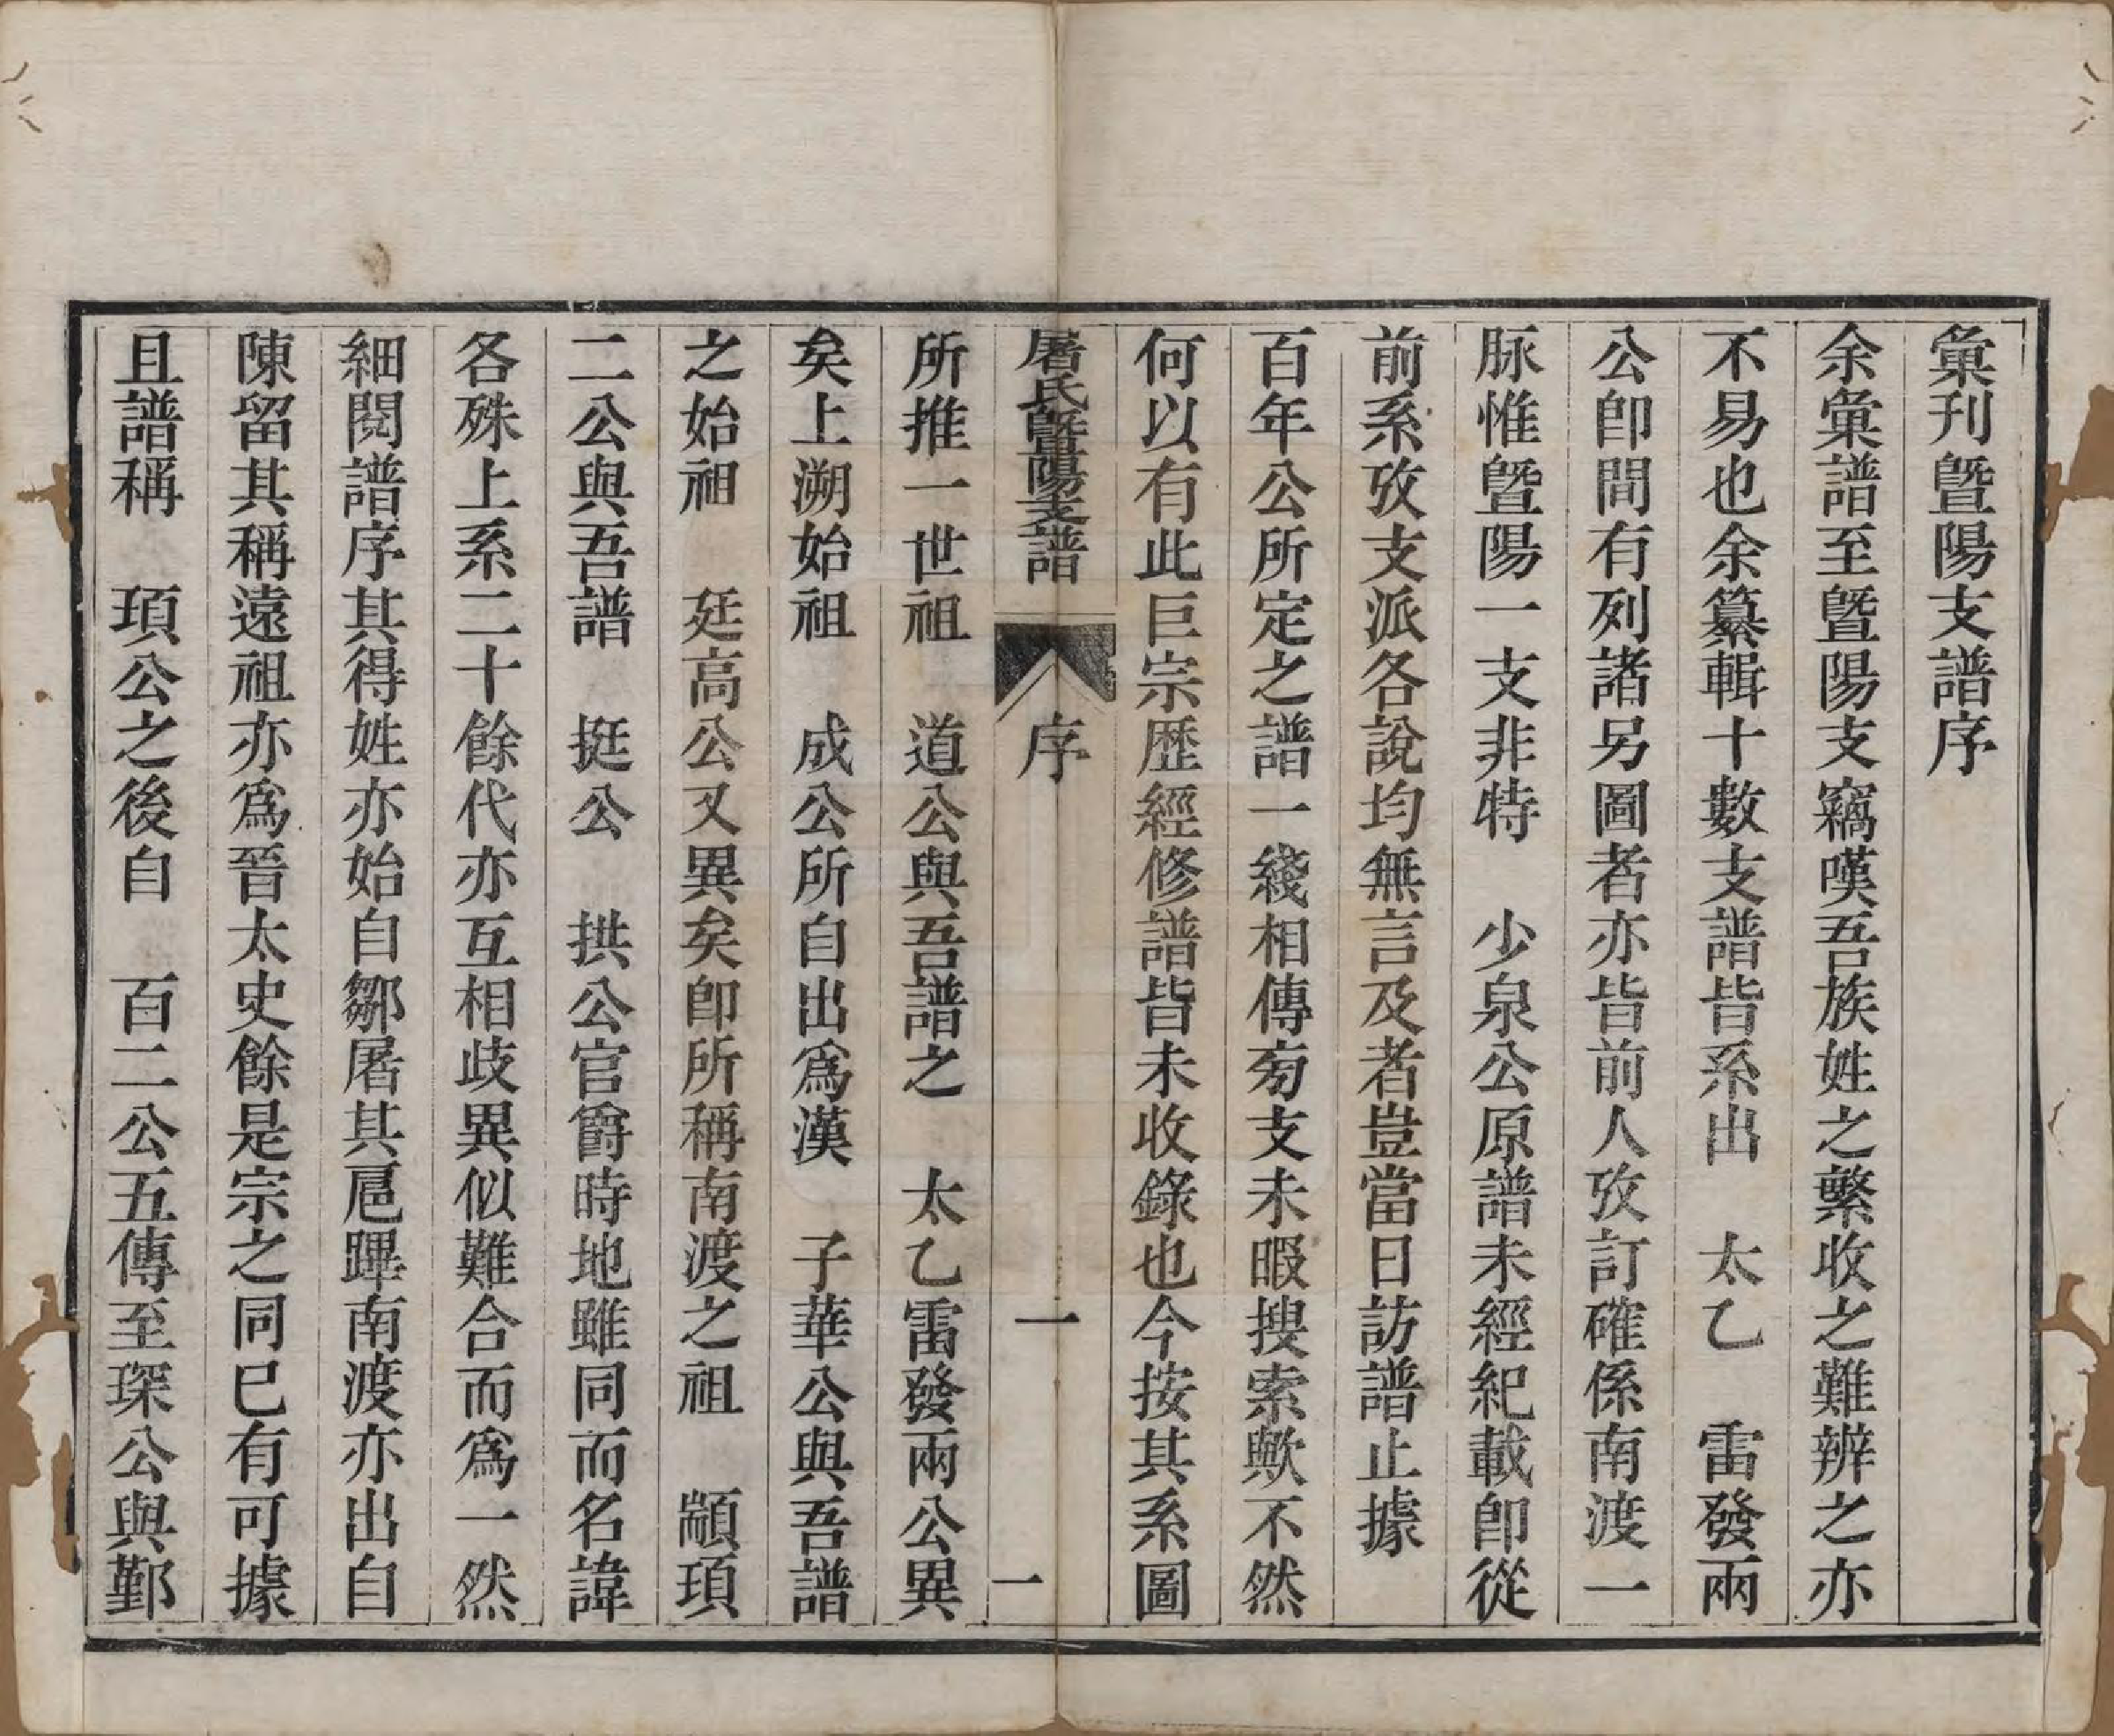 彙刊暨陽支譜序
余彙譜至暨陽支竊嘆吾族姓之繁收之難辨之亦
不易也余纂輯十數支譜皆系出　太乙　雷發兩
公卽間有列諸另圖者亦皆前人攷訂確係南渡一
脉惟暨陽一支非特　少泉公原譜未經紀載卽從
前系攷支派各說均無言及者豈當日訪譜止據
百年公所定之譜一綫相傳旁支未暇搜索歟不然
何以有此巨宗歷經修譜皆未收錄也今按其系圖
屠氏暨陽支譜　序　一　一
所推一世祖　道公與吾譜之　太乙雷發兩公異
矣上溯始祖　成公所自出爲漢　子華公與吾譜
之始祖　廷高公又異矣卽所稱南渡之祖　顓頊
二公與吾譜　挺公　拱公官爵時地雖同而名諱
各殊上系二十餘代亦互相歧異似難合而爲一然
細閱譜序其得姓亦始自鄒屠其扈蹕南渡亦出自
陳留其稱遠祖亦爲晉太史餘是宗之同已有可據
且譜稱　頊公之後自　百二公五傳至琛公與鄞